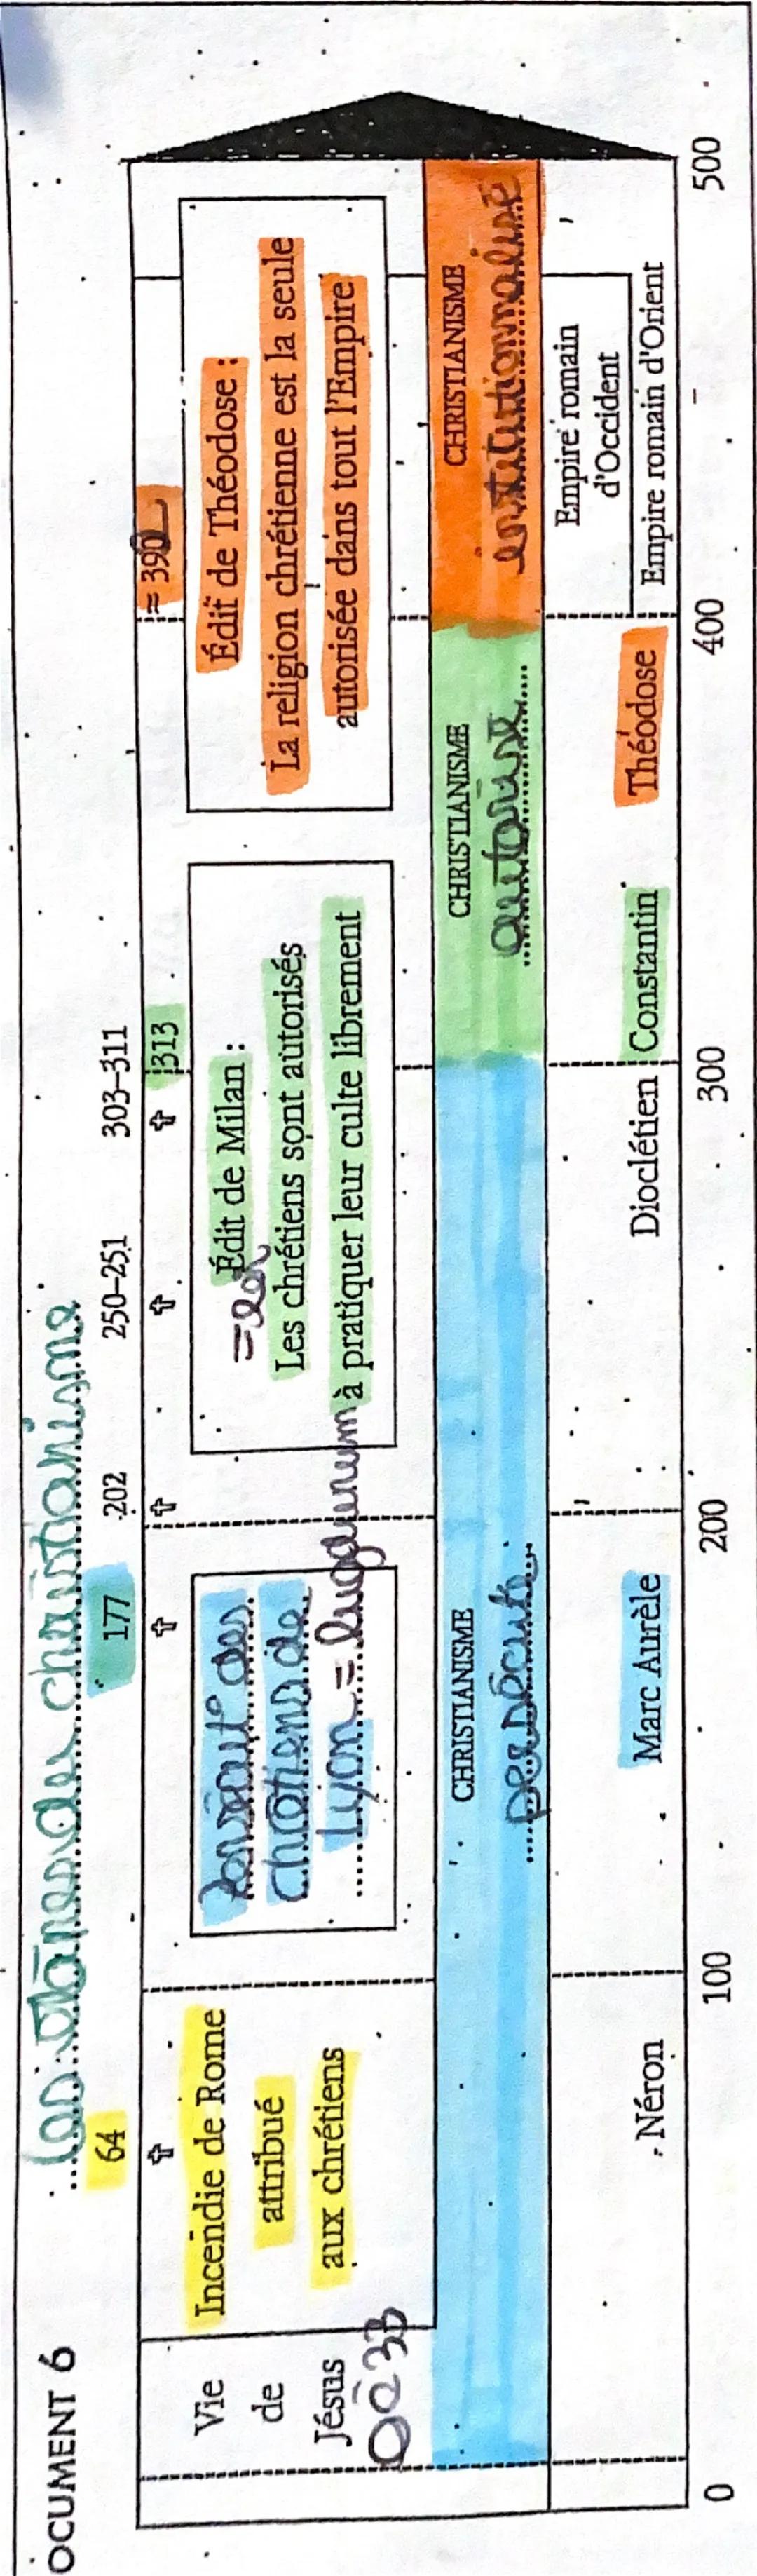 OCUMENT 6
Les étapes du christianisme
64
177
202
250–251
303–311
313
≈ 392
Vie
de
Jésus
0 à 33
Incendie de Rome
attribué
aux chrétiens
des
chrétiens de
Lyon = lugdunum
Édit de Milan :
= loi
Les chrétiens sont autorisés
à pratiquer leur culte librement
Édit de Théodose :
La religion chrétienne est la seule
autorisée dans tout l'Empire
CHRISTIANISME
persécuté
CHRISTIANISME
autorisé
CHRISTIANISME
institutionnalisé
Néron
Marc Aurèle
Dioclétien
Constantin
Théodose
Empire romain
d'Occident
Empire romain d'Orient
0
100
200
300
400
500